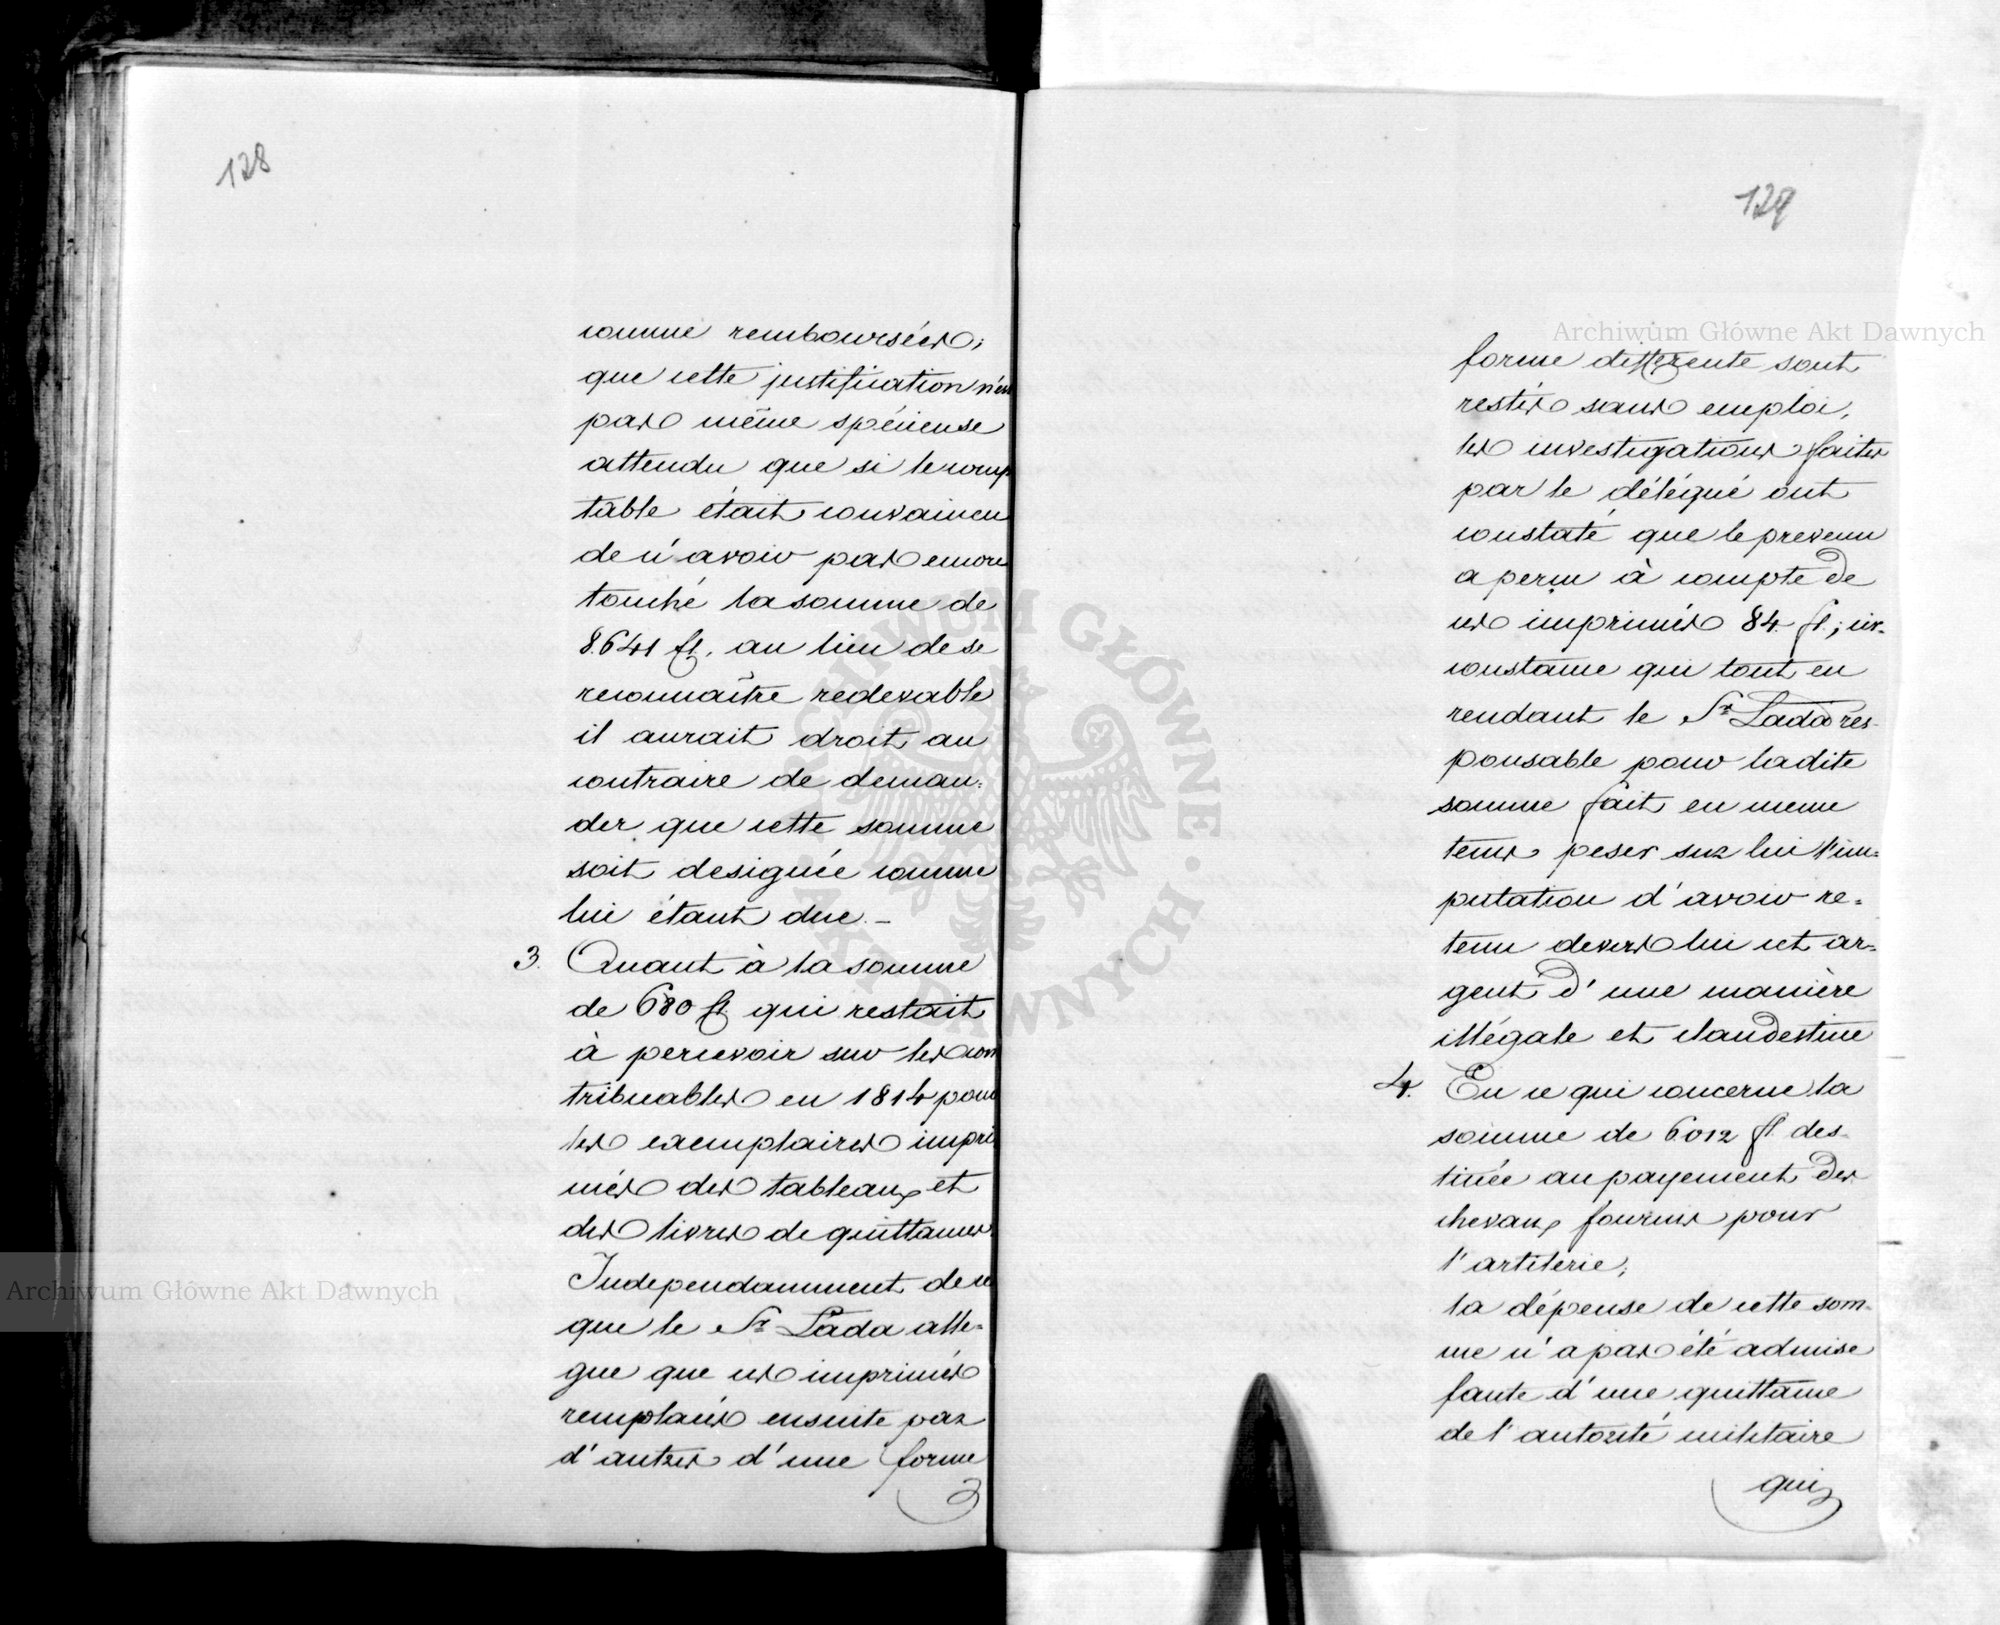 128
comme remboursées;
que cette justification n'est
pas même spécieuse
attendu que si le comp
table était convaincu
de n'avoir pas encore
touché la somme de
8.641 fl. au lieu de se
reconnaître redevable
il aurait droit au
contraire de deman-
der que cette somme
soit designée comme
lui étant due.-
3. Quant à la somme
de 680 fl. qui restait
à percevoir sur les con
tribuables en 1814 pour
les exemplaires impri
més des tableaux et
des livres de quittances
Independamment de ce
que le Sr. Lada alle-
gue que ces imprimés
remplacés ensuite par
d'autres d'une forme
129
forme differente sont
restés sans emploi,
les investigations faites
par le délégué ont
constaté que le prevenu
a perçu à compte de
ces imprimés 84. fl.; cir-
constance qui tout en
rendant le Sr. Lada res-
ponsable pour ladite
somme fait en meme
tems peser sur lui l'im-
putation d'avoir re-
tenu devers lui cet ar-
gent d'une manière
illégale et clandestine
4. En ce qui concerne la
somme de 6012 fl. des-
tinée au payement des
chevaux fournis pour
l'artilerie;
la dépense de cette som-
me n'a pas été admise
faute d'une quittance
de l'autorité militaire
qui
Archiwum Główne Akt Dawnych
Archiwum Główne Akt Dawnych
ARCHIWUM GŁÓWNE · AKT DAWNYCH ·